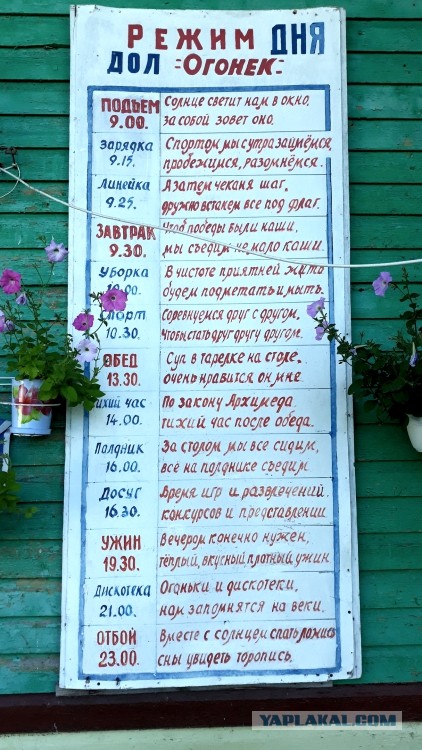 РЕЖИМ ДНЯ
ДОЛ "ОГОНЕК"
ПОДЪЕМ
9.00.
Солнце светит нам в окно,
за собой зовет оно.
Зарядка
9.15.
Спортом мы с утра займёмся,
пробежимся, разомнёмся.
Линейка
9.25.
А затем чеканя шаг,
дружно встанем все под флаг.
ЗАВТРАК
9.30.
Чтоб победы были наши,
мы съедим не мало каши.
Уборка
10.00.
В чистоте приятней жить
будем подметать и мыть.
Спорт
10.30.
Соревнуемся друг с другом,
чтобы стать друг другу другом.
ОБЕД
13.30.
Суп в тарелке на столе,
очень нравится он мне.
Тихий час
14.00.
По закону Архимеда
тихий час после обеда.
Полдник
16.00.
За столом мы все сидим,
всё на полднике съедим
Досуг
16.30.
Время игр и развлечений,
конкурсов и представлении
УЖИН
19.30.
Вечером конечно нужен,
тёплый, вкусный, плотный ужин
Дискотека
21.00.
Огоньки и дискотеки,
нам запомнятся на веки.
ОТБОЙ
23.00.
Вместе с солнцем спать ложись
сны увидеть торопись.
YAPLAKAL.COM